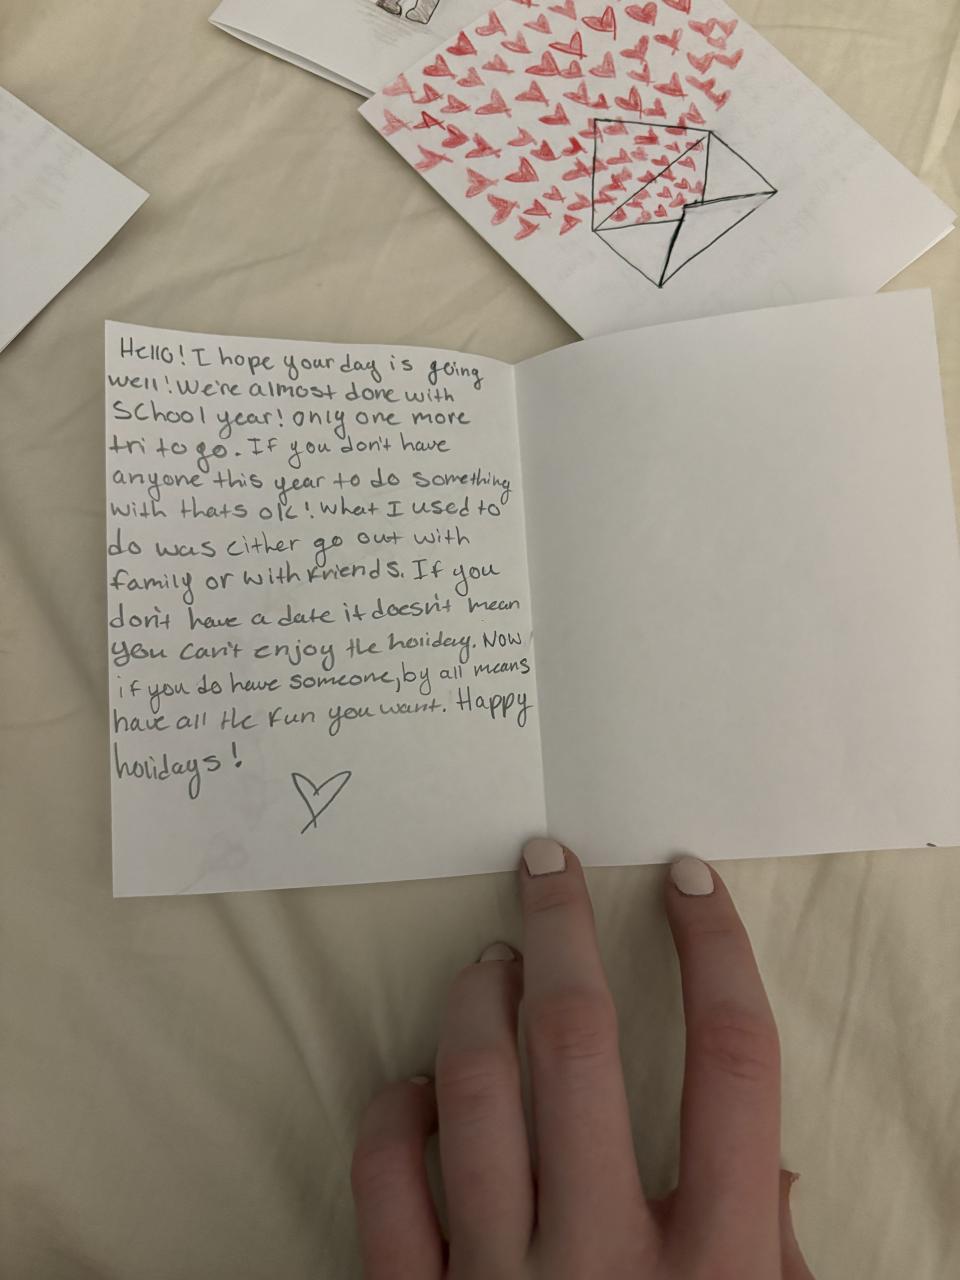 Hello! I hope your day is going
well! We're almost done with
school year! only one more
tri to go. If you don't have
anyone this year to do something
with thats ok! what I used to
do was either go out with
family or with friends. If you
don't have a date it doesn't mean
you can't enjoy the holiday. Now
if you do have someone, by all means
have all the fun you want. Happy
holidays!